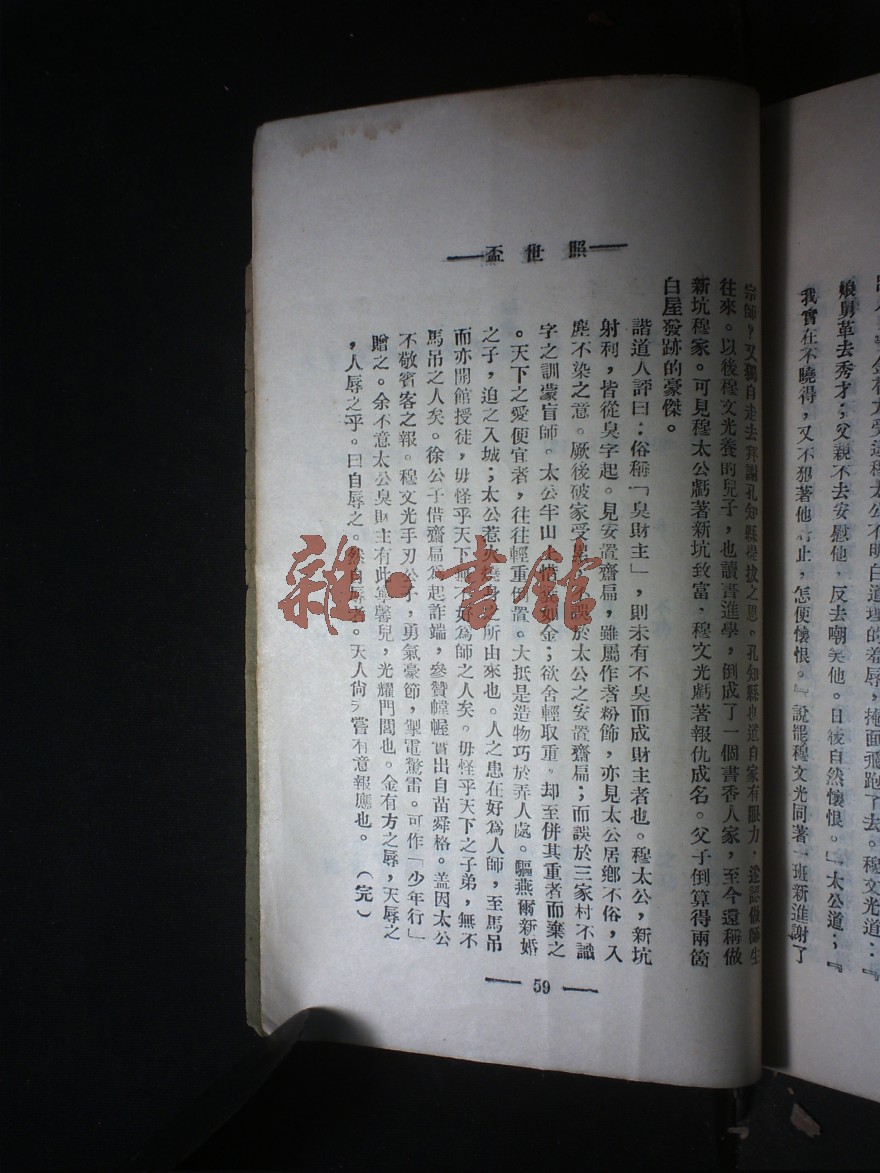 出入⋯⋯金有方受這穆太公不明道理的羞辱，掩面飛跑了去。穆文光道：『
娘舅革去秀才；父親不去安慰他，反去嘲笑他。日後自然懷恨。』太公道；『
我實在不曉得，又不犯著他行止，怎便懷恨。』說罷穆文光同著一班新進謝了
照世盃
宗師，又獨自走去拜謝孔知縣提拔之恩。孔知縣也道自家有眼力．遂認做師生
往來。以後穆文光養的兒子，也讀書進學，倒成了一個書香人家，至今還稱做
新坑穆家。可見穆太公虧著新坑致富，穆文光虧著報仇成名。父子倒算得兩箇
白屋發跡的豪傑。
諧道人評曰：俗稱「臭財主」，則未有不臭而成財主者也。穆太公，新坑
射利，皆從臭字起。見安置齋扁，雖屬作者粉飾，亦見太公居鄉不俗，入
塵不染之意。厥後破家受不誤於太公之安置齋扁；而誤於三家村不識
字之訓蒙盲師。太公半山如金；欲舍輕取重，却至併其重者而棄之
。天下之愛便宜者，往往輕重倒置。大抵是造物巧於弄人處。驅燕爾新婚
之子，迫之入城；太公惹火燒身之所由來也。人之患在好為人師，至馬吊
而亦開館授徒，毋怪乎天下無不好為師之人矣。毋怪乎天下之子弟，無不
馬吊之人矣。徐公子借齋扁為起詐端，參贊幄幄實出自苗舜格。盖因太公
不敬賓客之報。穆文光手刃公子，勇氣豪節，掣電驚雷。可作「少年行」
贈之。余不意太公臭財主有此寧馨兒，光耀門閭也。金有方之辱，天辱之
，人辱之乎。曰自辱之。然自辱者。天人尙未嘗有意報應也。（完）
59
雜·書館